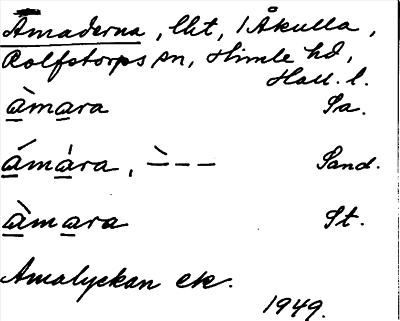 Amaderna, lht, 1 Åkulla,
Rolfstorps sn, Himle hd,
Hall. l.
àmara Sa.
ámàra, ‒̀ ‒ ‒ Sand.
àmara St.
Amalyckan ek.
1949.